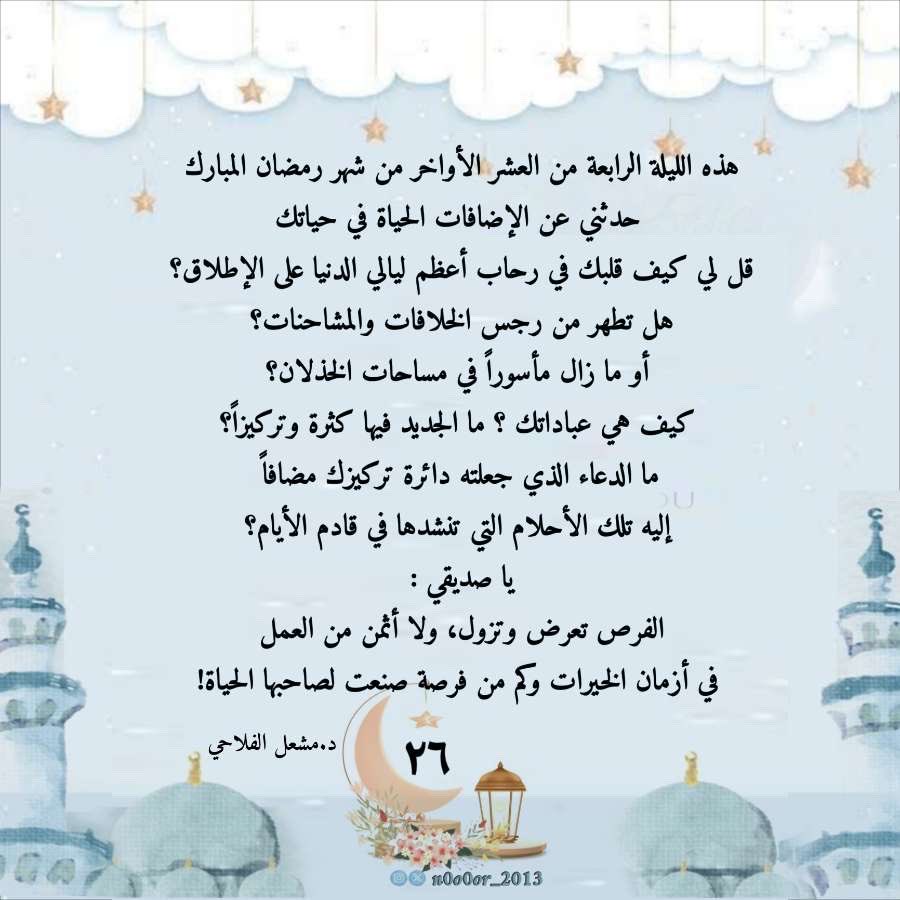 هذه الليلة الرابعة من العشر الأواخر من شهر رمضان المبارك
حدثني عن الإضافات الحياة في حياتك
قل لي كيف قلبك في رحاب أعظم ليالي الدنيا على الإطلاق؟
هل تطهر من رجس الخلافات والمشاحنات؟
أو ما زال مأسوراً في مساحات الخذلان؟
كيف هي عباداتك ؟ ما الجديد فيها كثرة وتركيزاً؟
ما الدعاء الذي جعلته دائرة تركيزك مضافاً
إليه تلك الأحلام التي تنشدها في قادم الأيام؟
يا صديقي :
الفرص تعرض وتزول، ولا أثمن من العمل
في أزمان الخيرات وكم من فرصة صنعت لصاحبها الحياة!
د.مشعل الفلاحي
٢٦
n0o0or_2013